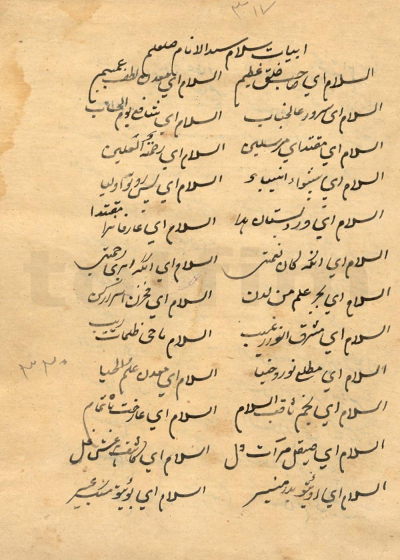 ٣١٧
ابيات سلام سيد الانام صلعم
السلام اي صاحب خلق عظيم السلام اي معدن لطف عميم
السلام اي سرور عاليجناب السلام اي شافع يوم الحساب
السلام اي مقتداي مرسلين السلام اي رحمة للعالمين
السلام اي پيشواء انبياء السلام اي اوليا
السلام اي ورد بستان هدا السلام اي عارفانرا مقتدا
السلام اي انكه كان نعمتى السلام اي انكه ابر رحمتى
السلام اي بحر علم من لدن السلام اي مخزن اسرار كن
السلام اي مشرق انوار غيب السلام ماحى ظلمات ريب
السلام اي مطلع نور وضيا السلام اي معدن علم والحيا
السلام اي نجم ثاقب السلام السلام اي تمام
السلام اي صيقل مرآت دل السلام اي كاشف غش غل
السلام اي منير السلام اي عبير
٣٣٠